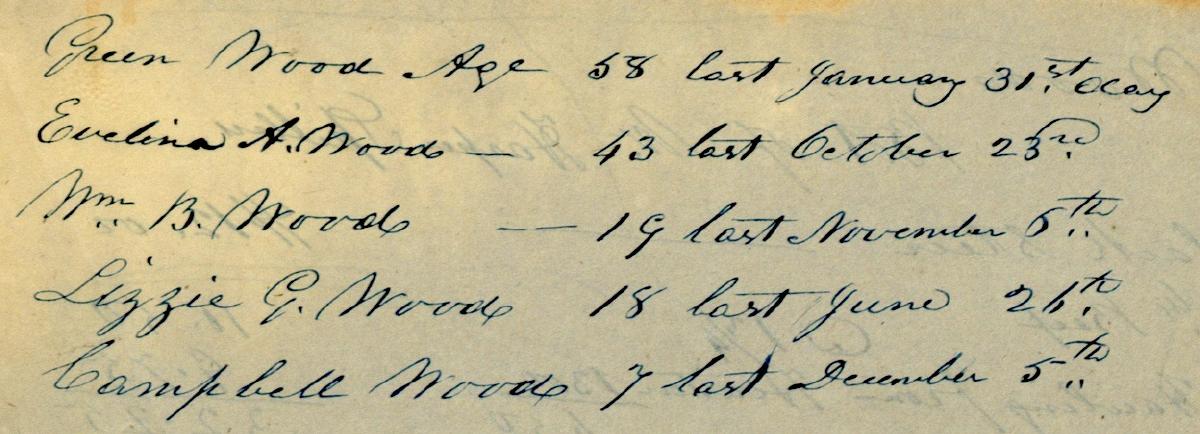 Green Wood Age 58 last January 31st day
Evelina A. Wood — 43 last October 23rd
Wm B. Wood —— 19 last November 6th
Lizzie G. Wood 18 last June 26th
Campbell Wood 7 last December 5th